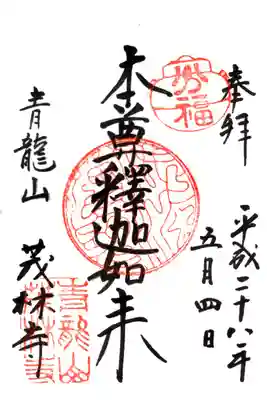 奉拝
平成二十八年
五月四日
分福
本尊釋迦如来
青龍山
茂林寺
青龍山
茂林寺